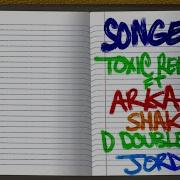 SONGE
TOXIC RE
Ft
ARKA
SHAK
D DOUBLE
JORD